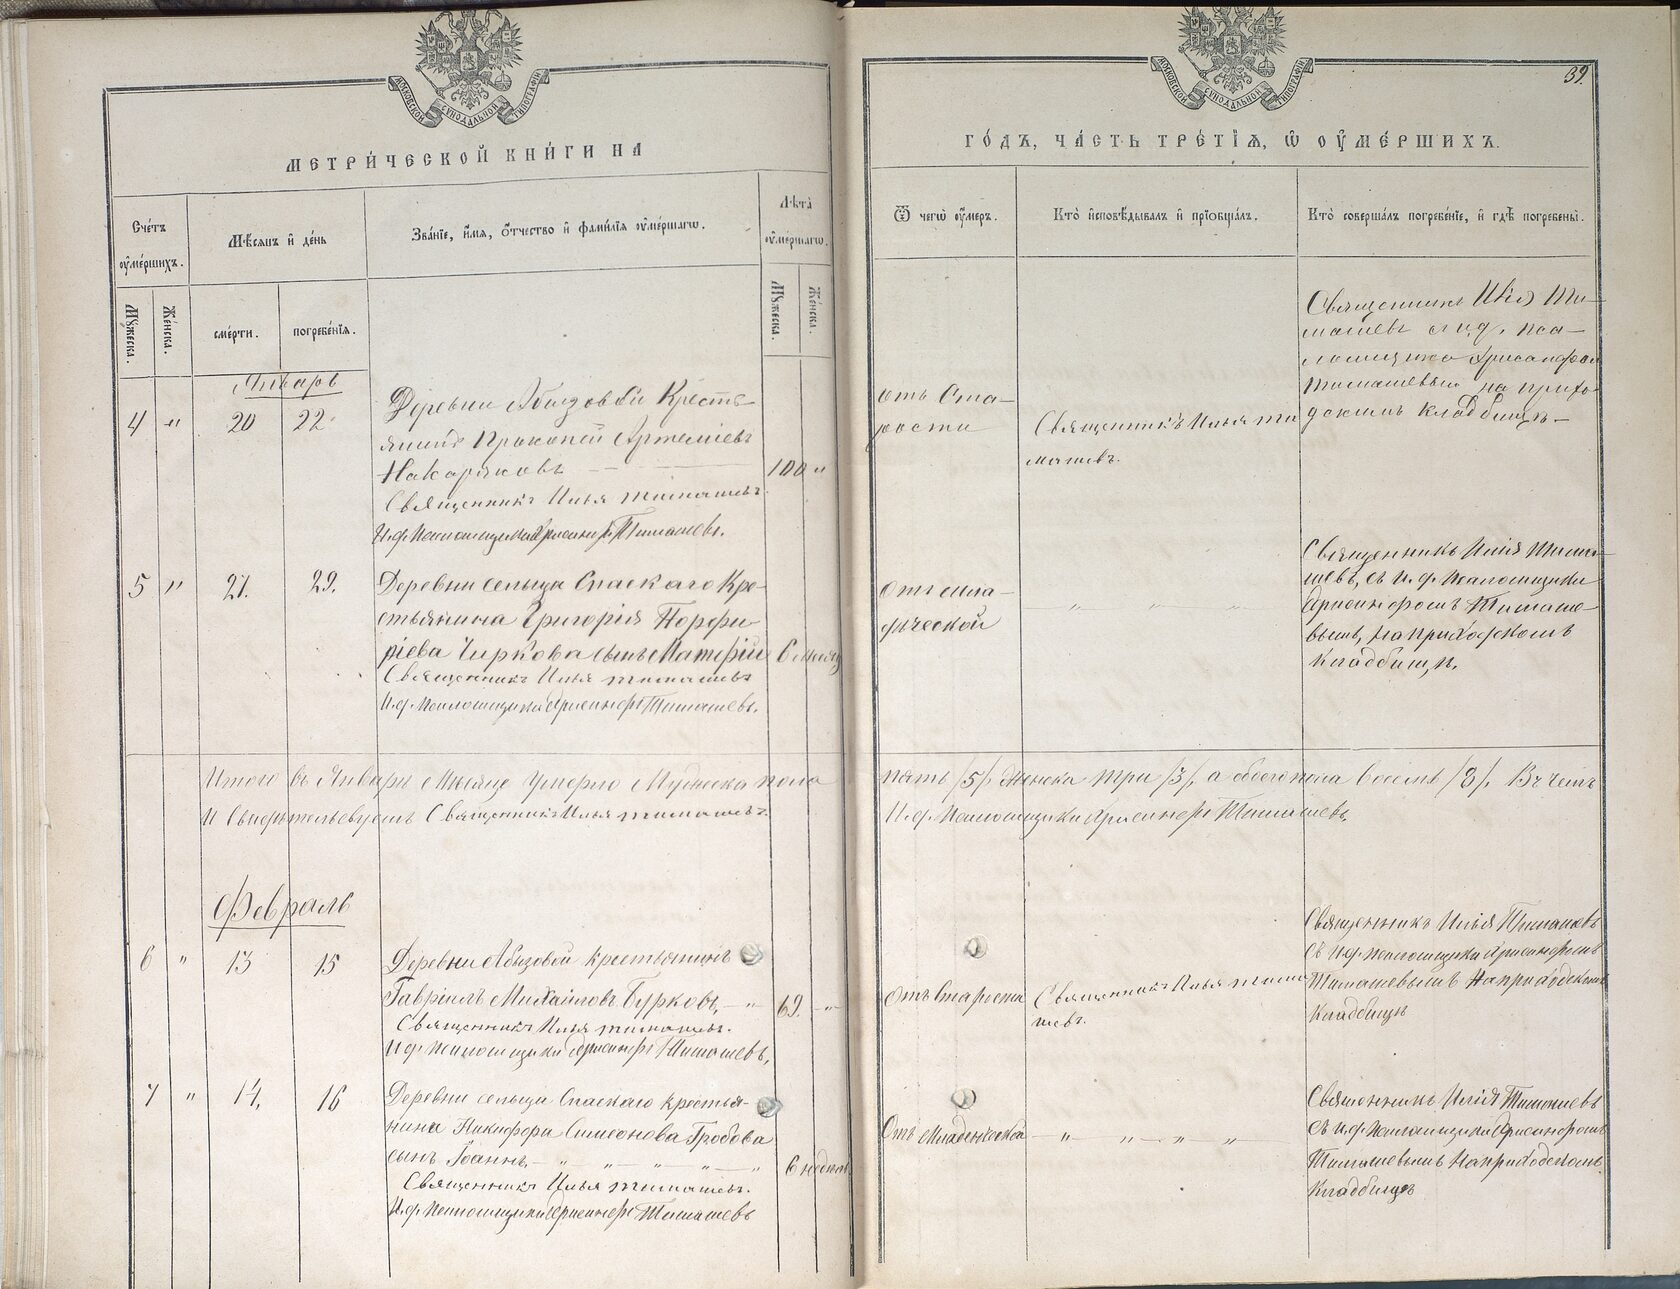 МОСКОВСКОЙ СѴНОДАЛЬНОЙ ТИПОГРАФІИ
МЕТРИ́ЧЕСКОЙ КНИ́ГИ НА
Сче́тъ ᲂу҆ме́ршихъ.
Мѣ́сяцъ и҆ де́нь
Зва́нїе, и҆́мя, ѻ҆́тчество и҆ фами́лїя ᲂу҆ме́ршагѡ.
Лѣ́та ᲂу҆ме́ршагѡ.
Мꙋ́жеска.
Же́нска.
сме́рти.
погребе́нїя.
Мꙋ́жеска.
Же́нска.
Январь
4 " 20 22
Деревни Абызовой Кресть-
янинъ Прокопей Артеміевъ
Накаряковъ 100 "
Священникъ Илья Тимашевъ.
И.д. Псаломщика Хрисанфъ Тимашевъ.
5 " 21. 22.
Деревни сельца Спаскаго Кре-
стьянина Григорія Порфи-
ріева Чиркова сынъ 6 месяц
Священникъ Илья Тимашевъ
И.д. Псаломщика Хрисанфъ Тимашевъ.
Итого въ Январѣ Мѣсяце Умерло Мужеска пола
И Свидѣтельствуемъ Священникъ Илья Тимашевъ.
Февраль
6 " 13 15
Деревни Абызовой крестьянинъ
Гавріилъ Михайловъ Бурковъ, — " 69. — "
Священникъ Илья Тимашевъ.
И.д. Псаломщика Хрисанфъ Тимашевъ,
7 " 14, 16
Деревни сельца Спаскаго крестья-
нина Никифора Симеонова Гробова
сынъ Іоаннъ, — " — " — " — " — " 6 недѣль
Священникъ Илья Тимашевъ.
И.д. Псаломщика Хрисанфъ Тимашевъ
МОСКОВСКОЙ СѴНОДАЛЬНОЙ ТИПОГРАФІИ
39.
ГО́ДЪ, ЧА́СТЬ ТРЕ́ТІѦ, Ѡ҆ ОУ҆МЕ́РШИХЪ.
Ѿ чегѡ̀ ᲂу҆́меръ.
Кто̀ и҆сповѣ́дывалъ и҆ прїѡбща́лъ.
Кто̀ соверша́лъ погребе́нїе, и҆ гдѣ̀ погребены̀.
отъ Ста-
рости
Священникъ Илья Ти
машевъ.
Священникъ Илія Ти-
машевъ с и.д. пса-
ломщика Хрисанфом
Тимашевым на прихо-
дскимъ кладбищѣ —
Отъ мла-
дѣческой
— " — " — "
Священникъ Илія Тима-
шевъ, съ и.д. Псаломщика
Хрисанфомъ Тимаше-
вымъ, на приходскомъ
кладбищѣ,
пять /5/ Женска три /3/, а обоего пола восемь /8/. В чемъ
И.д. Псаломщика Хрисанфъ Тимашевъ,
Отъ Старости
Священникъ Илья Тима
шевъ.
Священникъ Илія Тимашевъ
съ и.д. псаломщика Хрисанфомъ
Тимашевымъ На приходскомъ
Кладбищѣ
Отъ Младенческой — " — " — " — "
Священникъ Илія Тимашевъ
съ и.д. Псаломщика Хрисанфомъ
Тимашевымъ На приходскомъ
Кладбищѣ